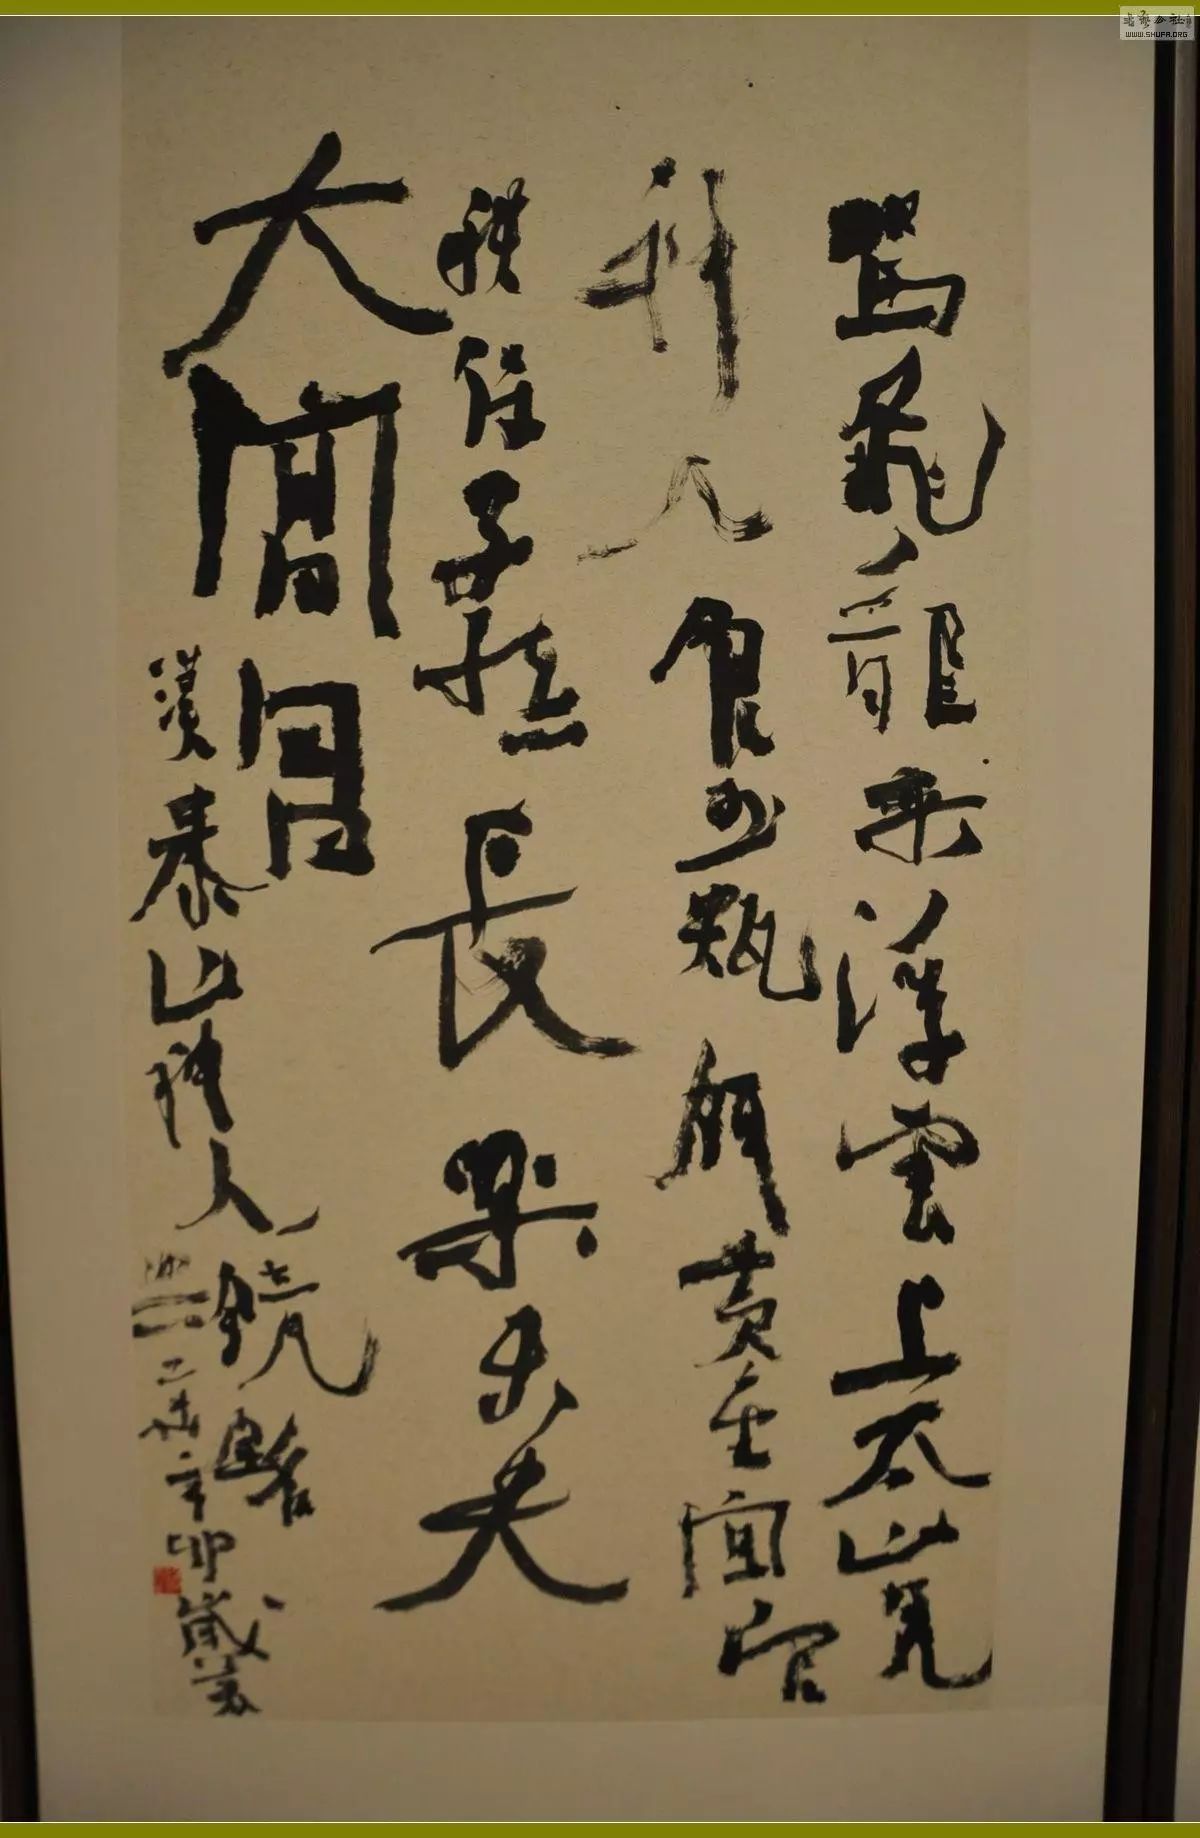 駕飛龍乘浮雲上太山見
神人食玉英飲黃金宜官
秩保子孫長樂未央
大富昌
漢泰山神人鏡銘
辛卯歲
书法公社
WWW.SHUFA.ORG